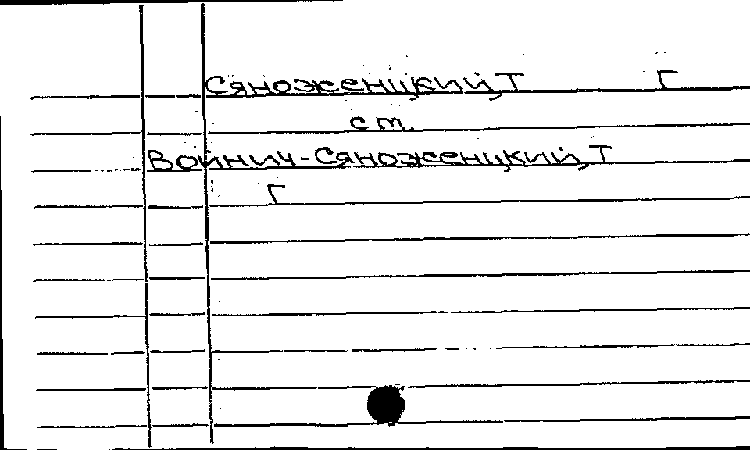 Сяноженцкий, Т Г
ст.
Войнич-Сяноженцкий, Т
Г